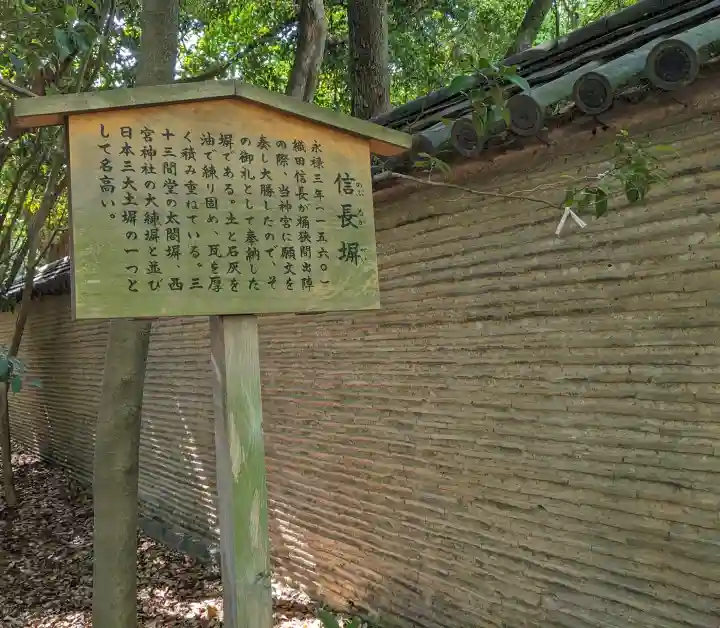 信長塀
のぶ なが べい
永禄三年(一五六〇)
織田信長が桶狭間出陣
の際、当神宮に願文を
奏し大勝したので、そ
の御礼として奉納した
塀である。土と石灰を
油で練り固め、瓦を厚
く積み重ねている。三
十三間堂の太閤塀、西
宮神社の大練塀と並び
日本三大土塀の一つと
して名高い。